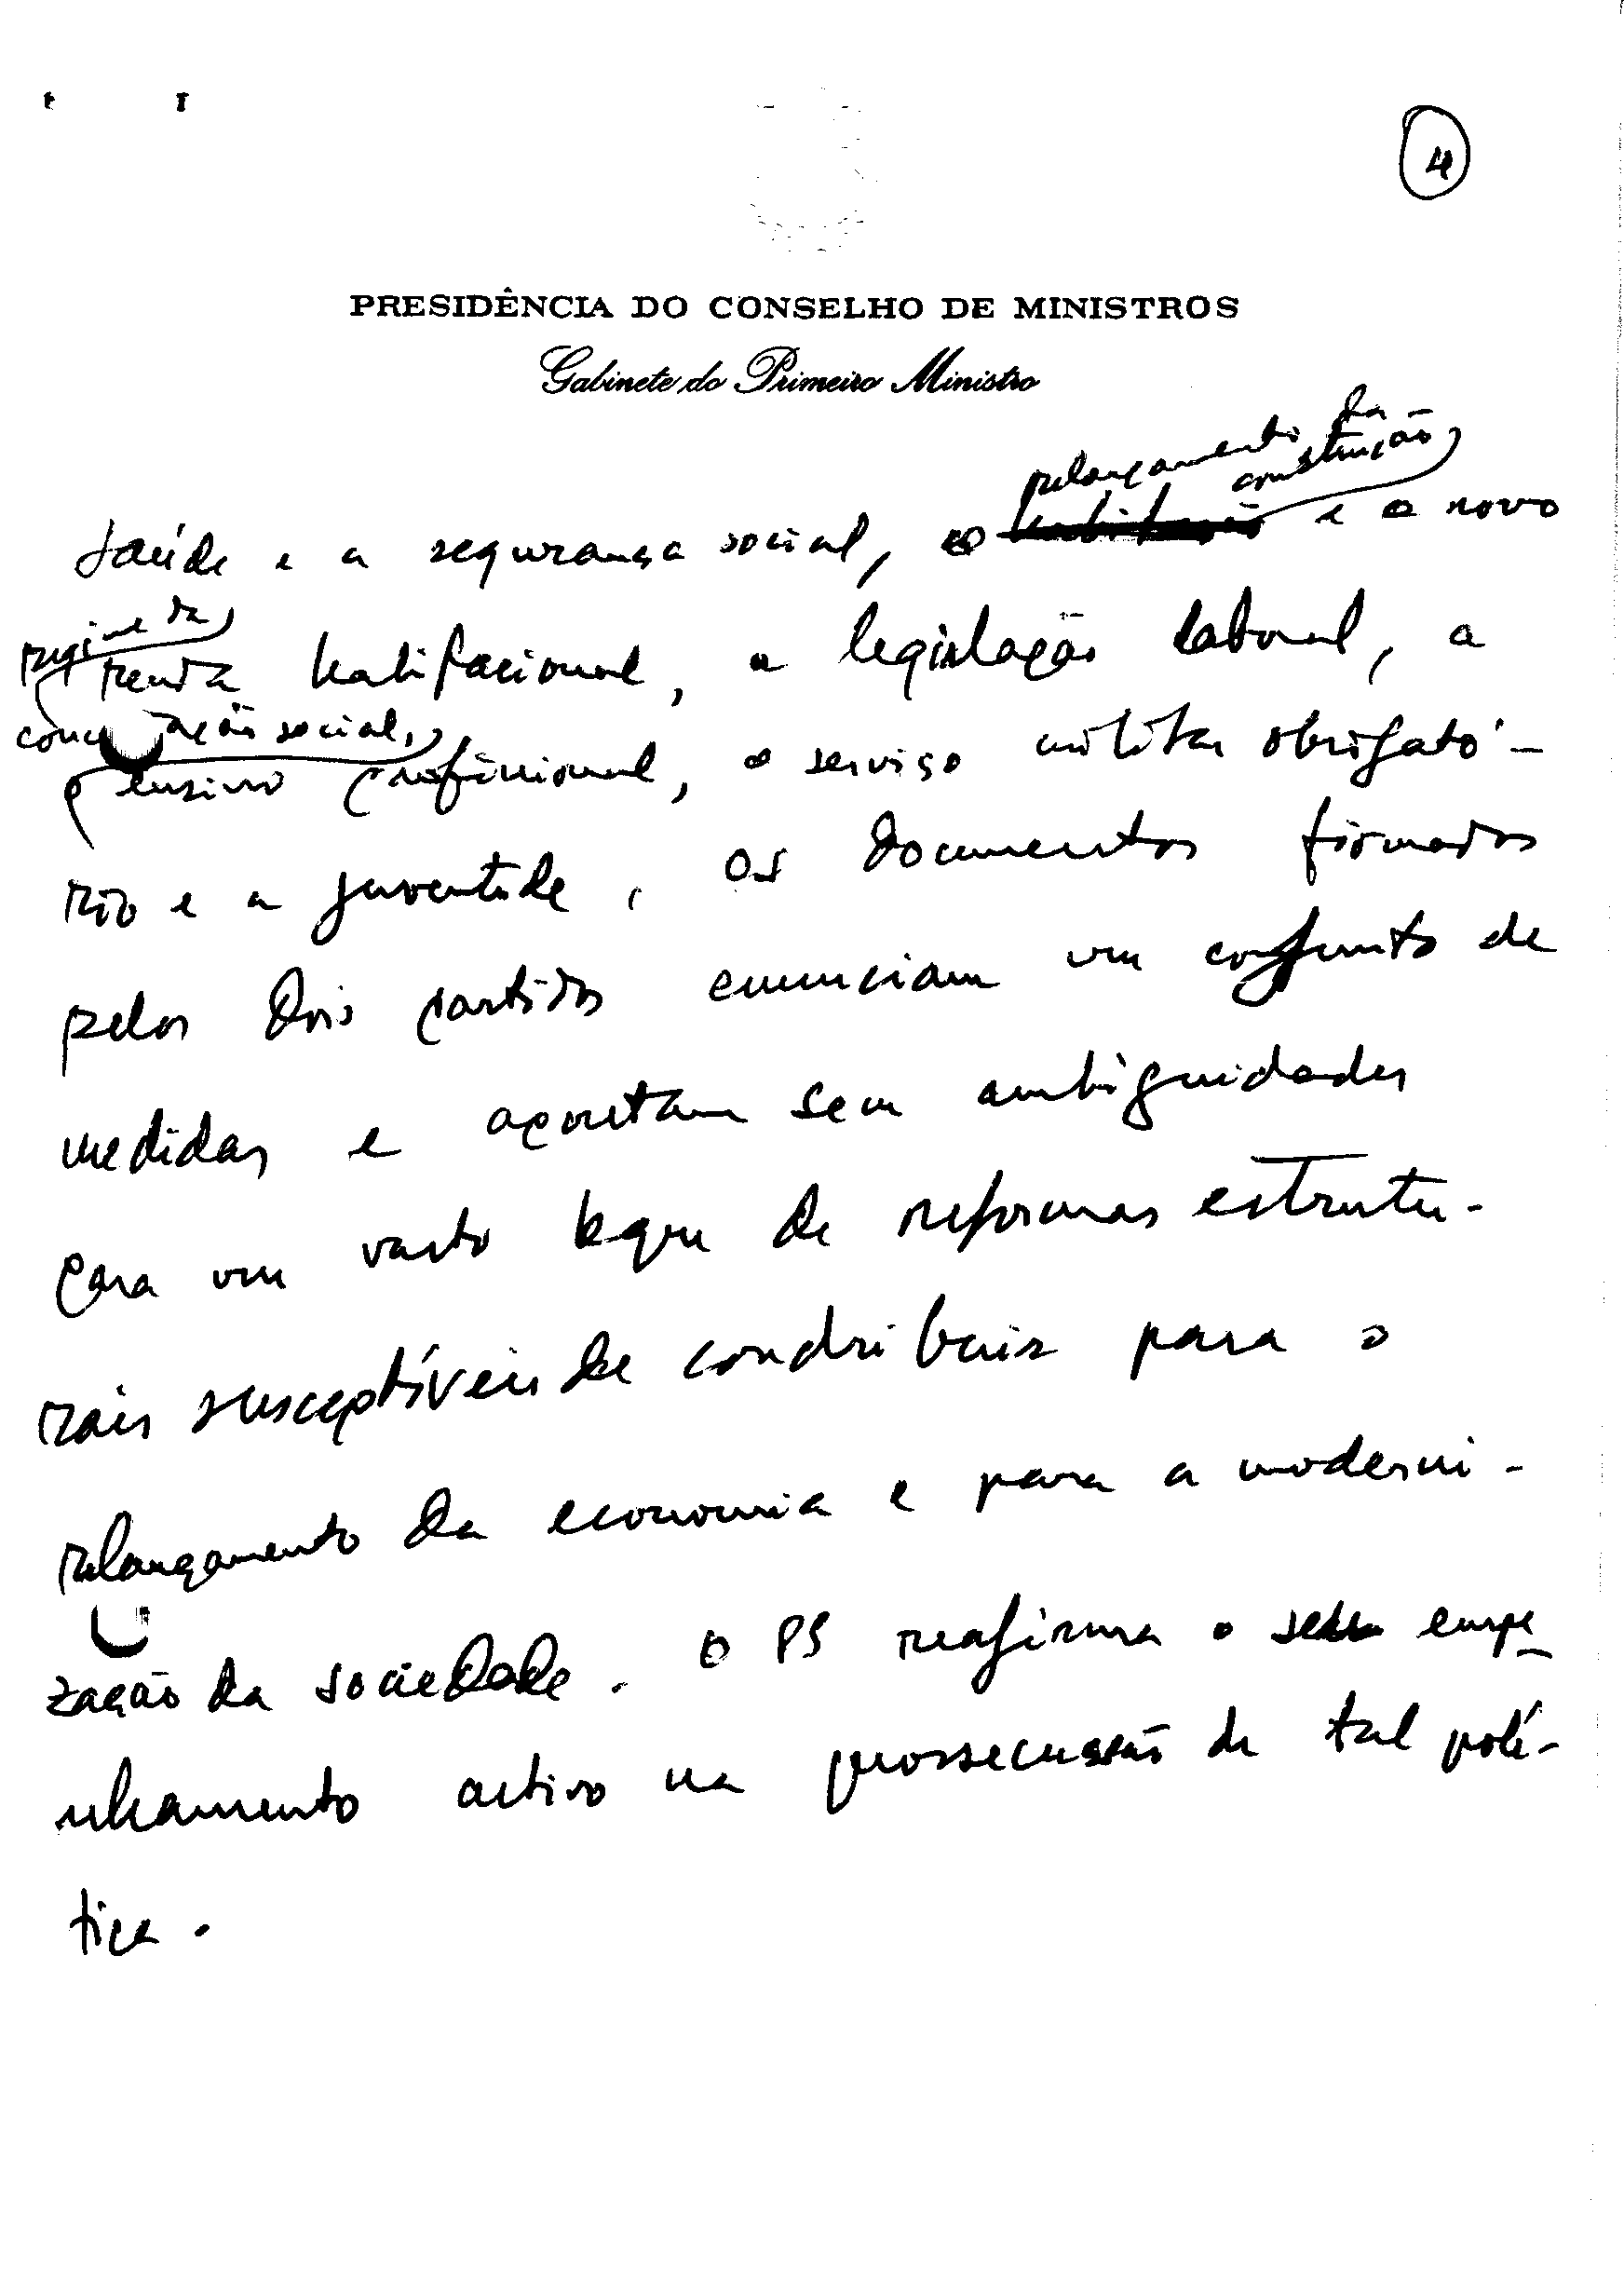 4
PRESIDÊNCIA DO CONSELHO DE MINISTROS
Gabinete do Primeiro Ministro
relançamento da
construção,
saúde e a segurança social, o habitação e o novo
regime da
renda habitacional, a legislação laboral, a
concertação social,
o ensino profissional, o serviço militar obrigató-
rio e a juventude, os documentos firmados
pelos dois partidos enunciam um conjunto de
medidas e apontam sem ambiguidades
para um vasto leque de reformas estrutu-
rais susceptíveis de contribuir para o
relançamento da economia e para a moderni-
zação da sociedade. O PS reafirma o seu empe-
nhamento activo na prossecussão de tal polí-
tica.